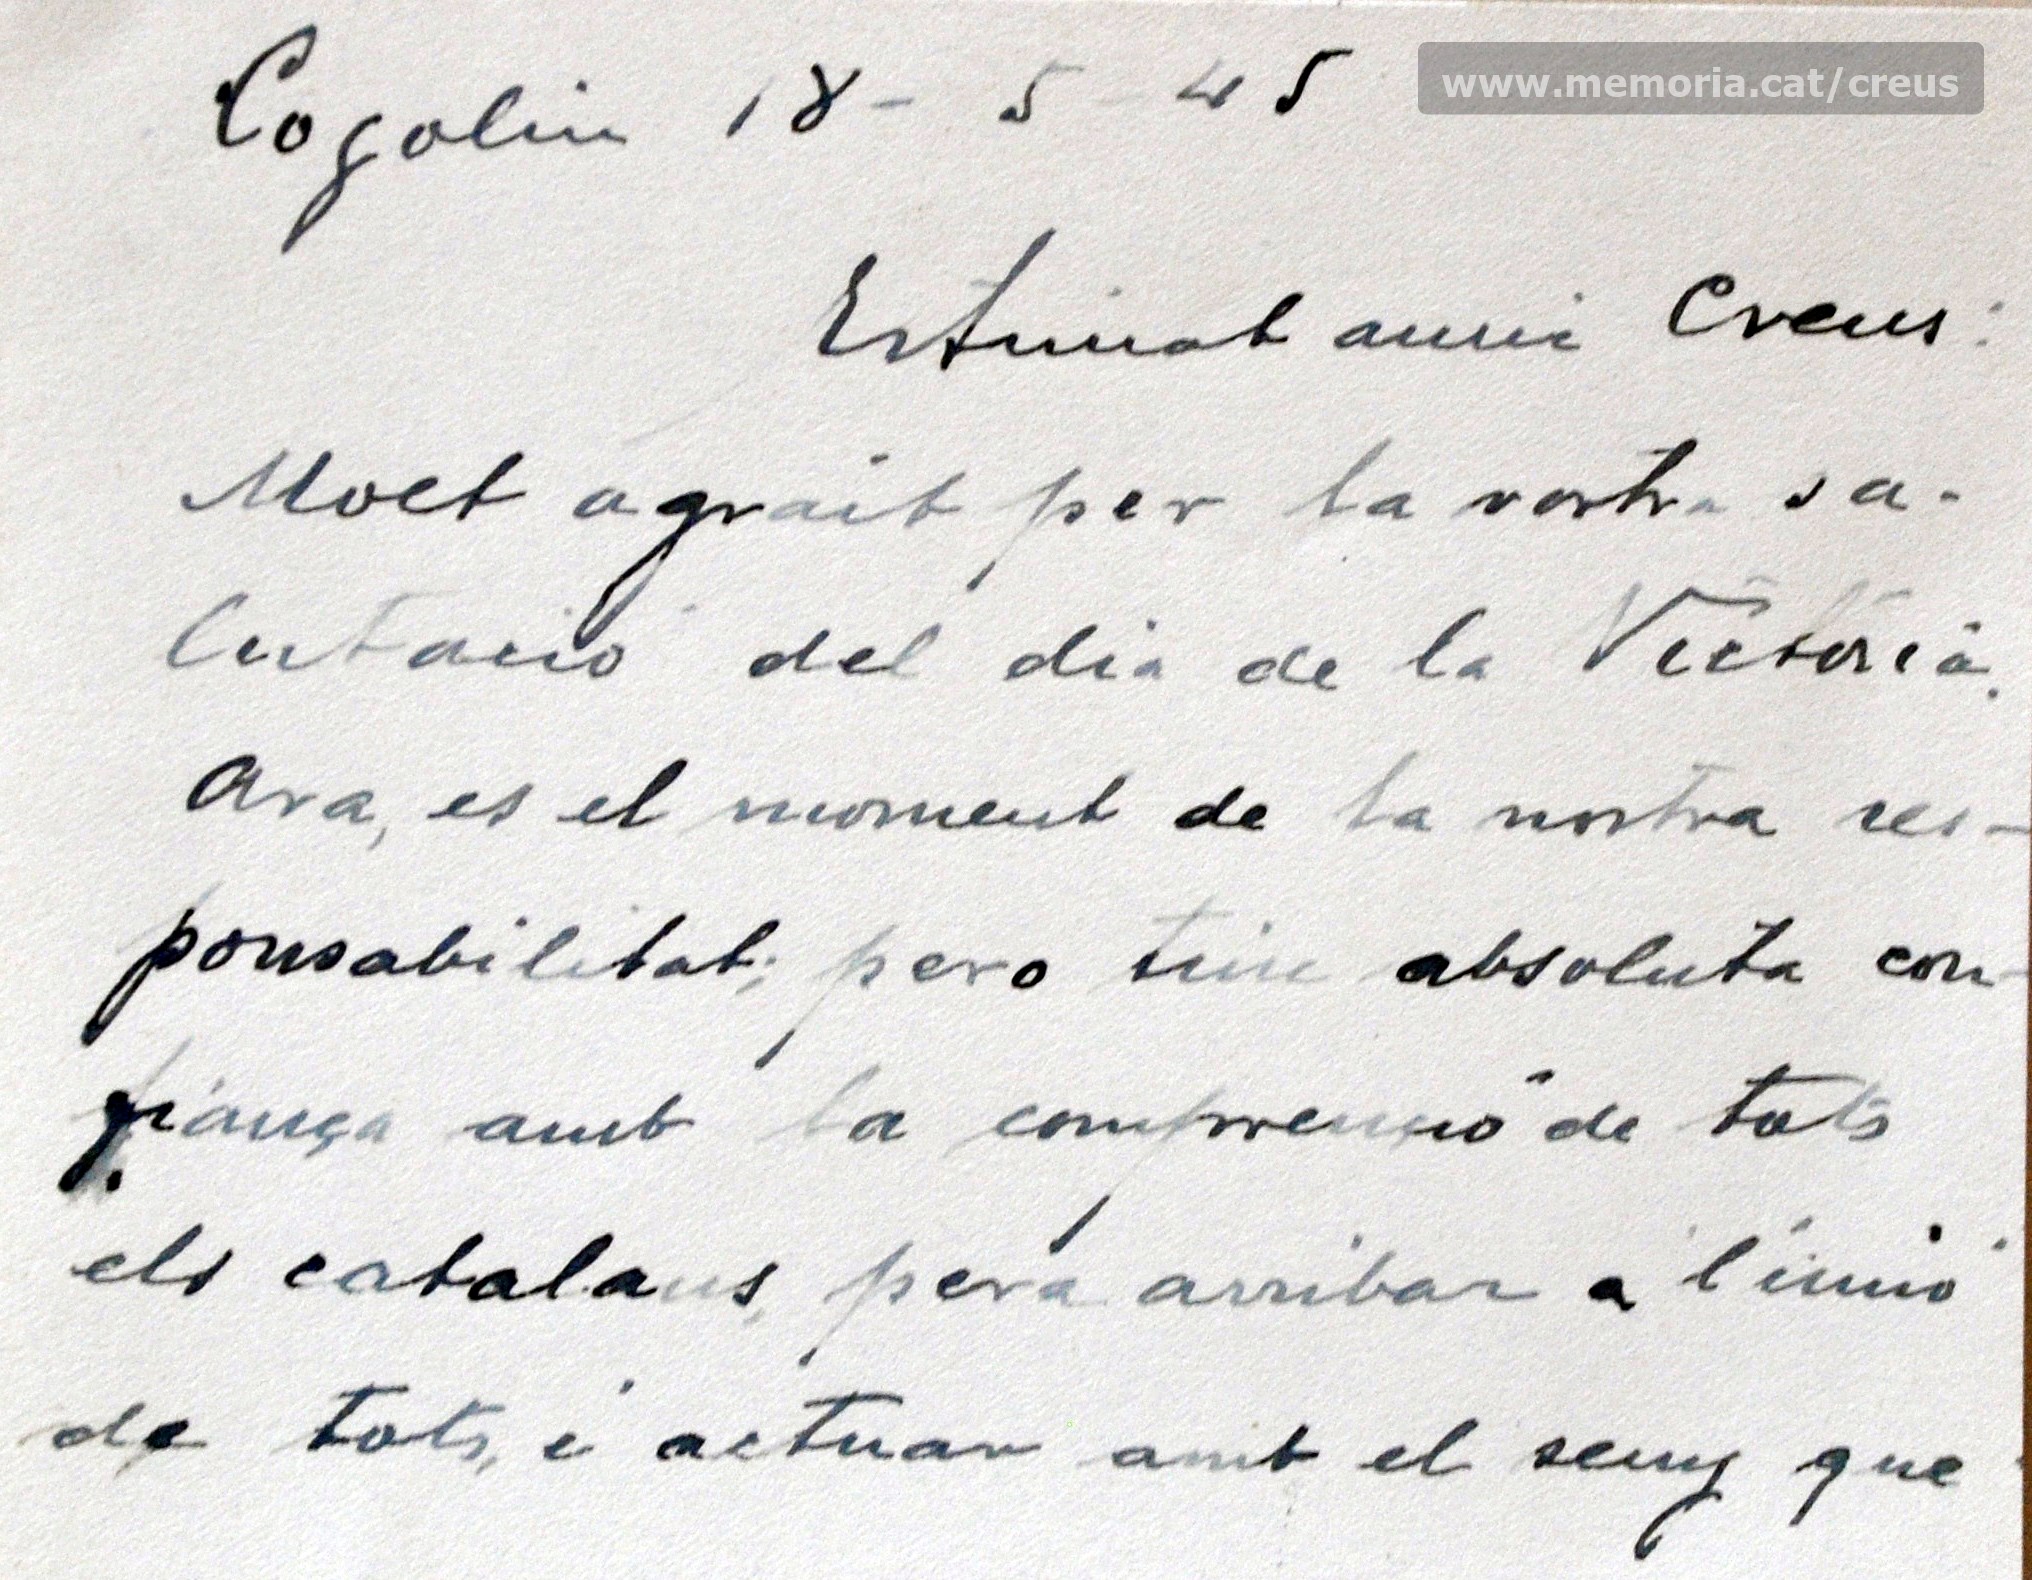 Cogolin 18-5-45
www.memoria.cat/creus
Estimat amic Creus:
Molt agrait per la vostra sa-
lutació del dia de la Victoria.
Ara, es el moment de la nostra res-
ponsabilitat; pero tinc absoluta con-
fiança amb la comprensió de tots
els catalans, pera arribar a l'unió
de tots, i actuar amb el seny que